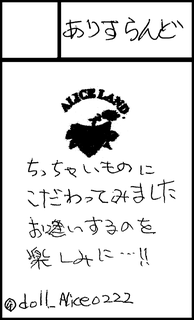 ありすらんど
ALICE LAND
ちっちゃいものに
こだわってみました
お逢いするのを
楽しみに…!!
@doll_Alice0222